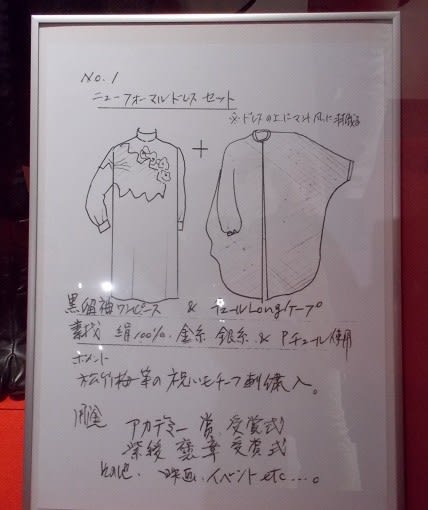 No.1
ニューフォーマルドレスセット
※ドレスの上にマント風に羽織る
+
黒留袖ワンピース & チュールLongケープ
素材 絹100%. 金糸 銀糸 & Pチュール使用
コメント
松竹梅等の祝いモチーフ刺繍入。
用途
アカデミー賞、受賞式
紫綬褒章 受賞式
その他、映画、イベント etc....。